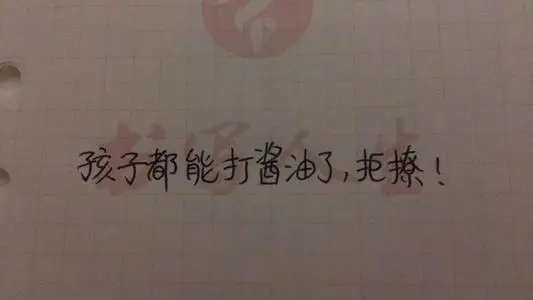 孩子都能打酱油了,拒撩!